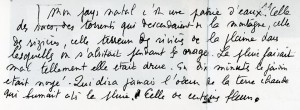 Mon pays natal c'est une patrie d'eaux. Celle
des lacs, des torrents qui descendaient de la montagne, celle
des rizières, celle terreuse des rivières de la plaine dans
lesquelles on s'abritait pendant les orages. La pluie faisait
mal tellement elle était drue. En dix minutes le jardin
était noyé. Qui dira jamais l'odeur de la terre chaude
qui fumait après la pluie. Celle de certaines fleurs.